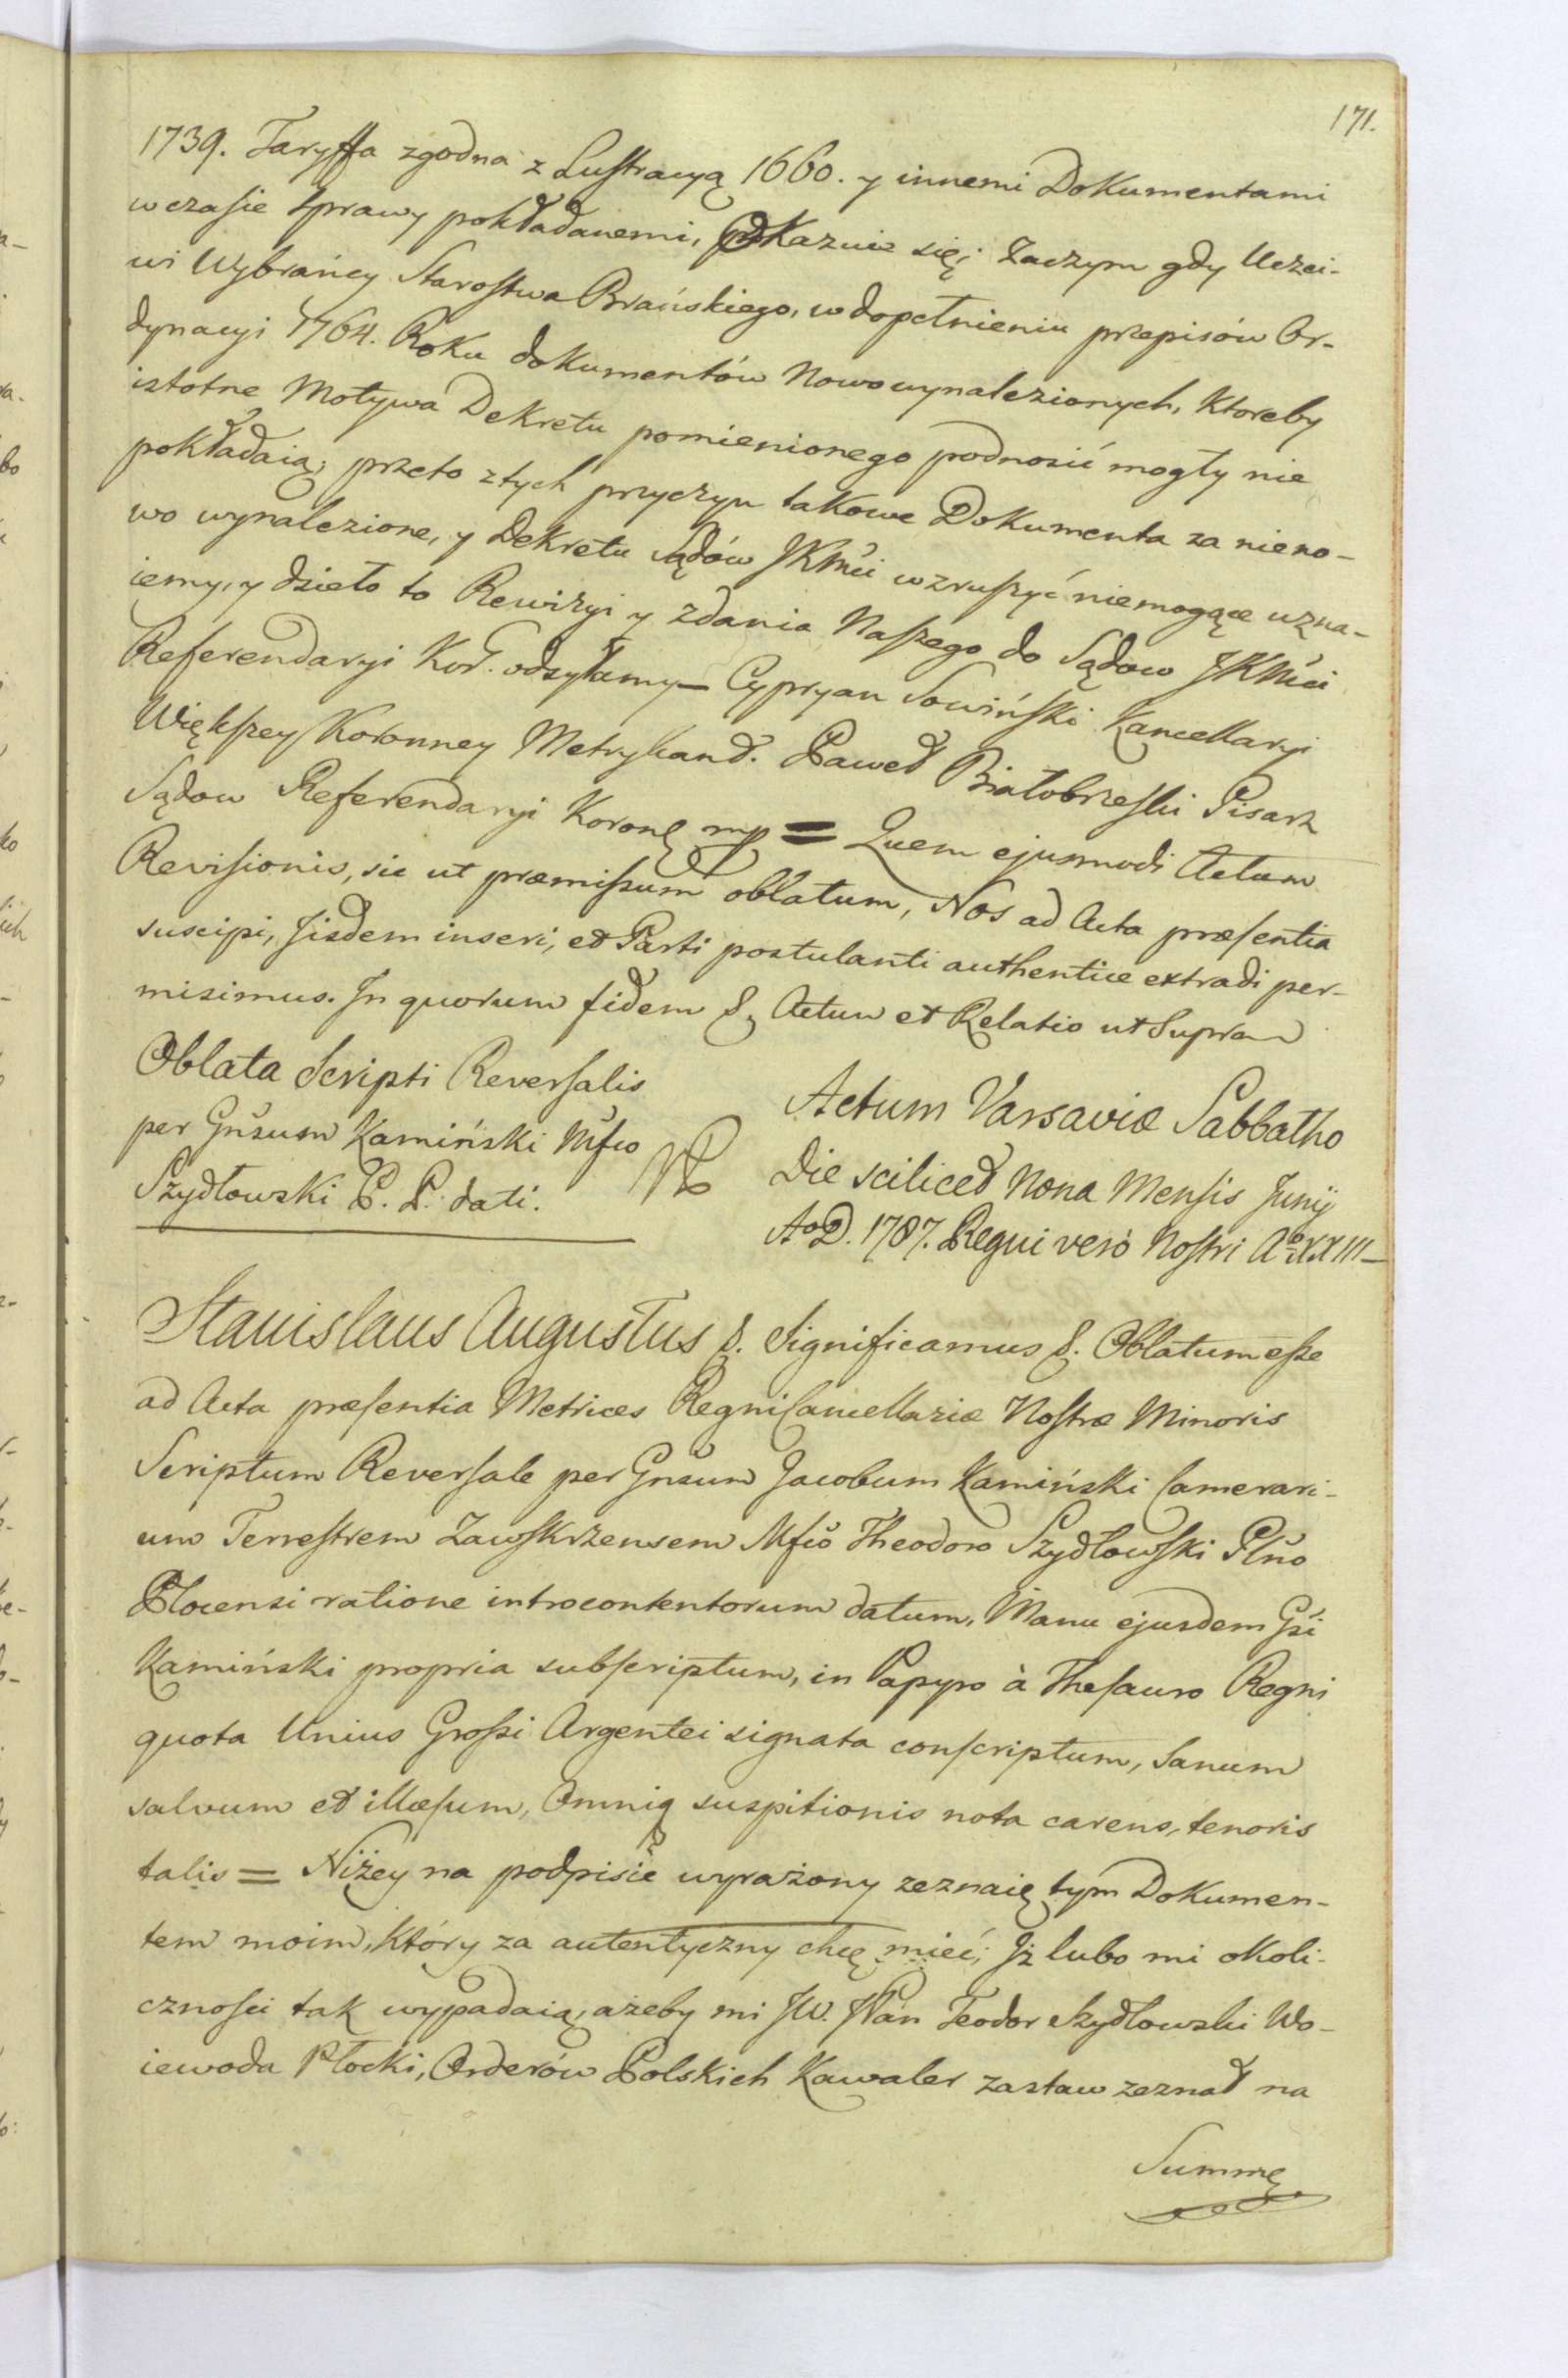 171.
1739. Taryffa zgodna z Lustracyą 1660. y innemi Dokumentami
w czasie sprawy pokładanemi, pokazuie się; Zaczym gdy Uczci-
wi Wybrańcy Starostwa Brańskiego, w dopełnieniu przepisów Or-
dynacyi 1764. Roku dokumentów Nowowynalezionych, Ktoreby
istotne Motywa Dekretu pomienionego podnosić mogły nie
pokładaią; przeto z tych przyczyn takowe Dokumenta za nieno-
wo wynalezione, y Dekretu Sądów JKMći wzruszyć niemogące uzna-
iemy, y dzieło to Rewizyi y zdania Naszego do Sądow JKMći
Referendaryi Kor. odsyłamy – Cypryan Sowiński Kancellaryi
Większey Koronney Metrykant. Paweł Białobrzeski Pisarz
Sądow Referendaryi Koronę mp = Quem ejusmodi Actum
Revisionis, sic ut præmissum oblatum, Nos ad Acta præsentia
suscipi, Jisdem inseri, et Parti postulanti authentice extradi per-
misimus. In quorum fidem &. Actum et Relatio ut Supra
Oblata Scripti Reversalis
per Gñsum Kamiński Mfco
Szydłowski P. P. dati.
Actum Varsaviæ Sabbatho
Die scilicet Nona Mensis Junij
AoD. 1787. Regni verò Nostri Ao XXIII –
Stanislaus Augustus &. Significamus &. Oblatum esse
ad Acta præsentia Metrices Regni Cancellariæ Nostræ Minoris
Scriptum Reversale per Gñsum Jacobum Kamiński Camerari-
um Terrestrem Zawskrzensem Mfco Theodoro Szydłowski Plño
Plocensi ratione introcontentorum datum, Manu ejusdem Gsi
Kamiński propria subscriptum, in Papyro à Thesauro Regni
quota Unius Grossi Argentei signata conscriptum, Sanum
salvum et illæsum, Omniq suspitionis nota carens, tenoris
talis = Niżey na podpisie wyrażony zeznaię tym Dokumen-
tem moim, który za autentyczny chcę mieć; Iż lubo mi okoli-
cznosci tak wypadaią, ażeby mi JW. JPan Teodor Szydłowski Wo-
iewoda Płocki, Orderów Polskich Kawaler zastaw zeznał na
Summę